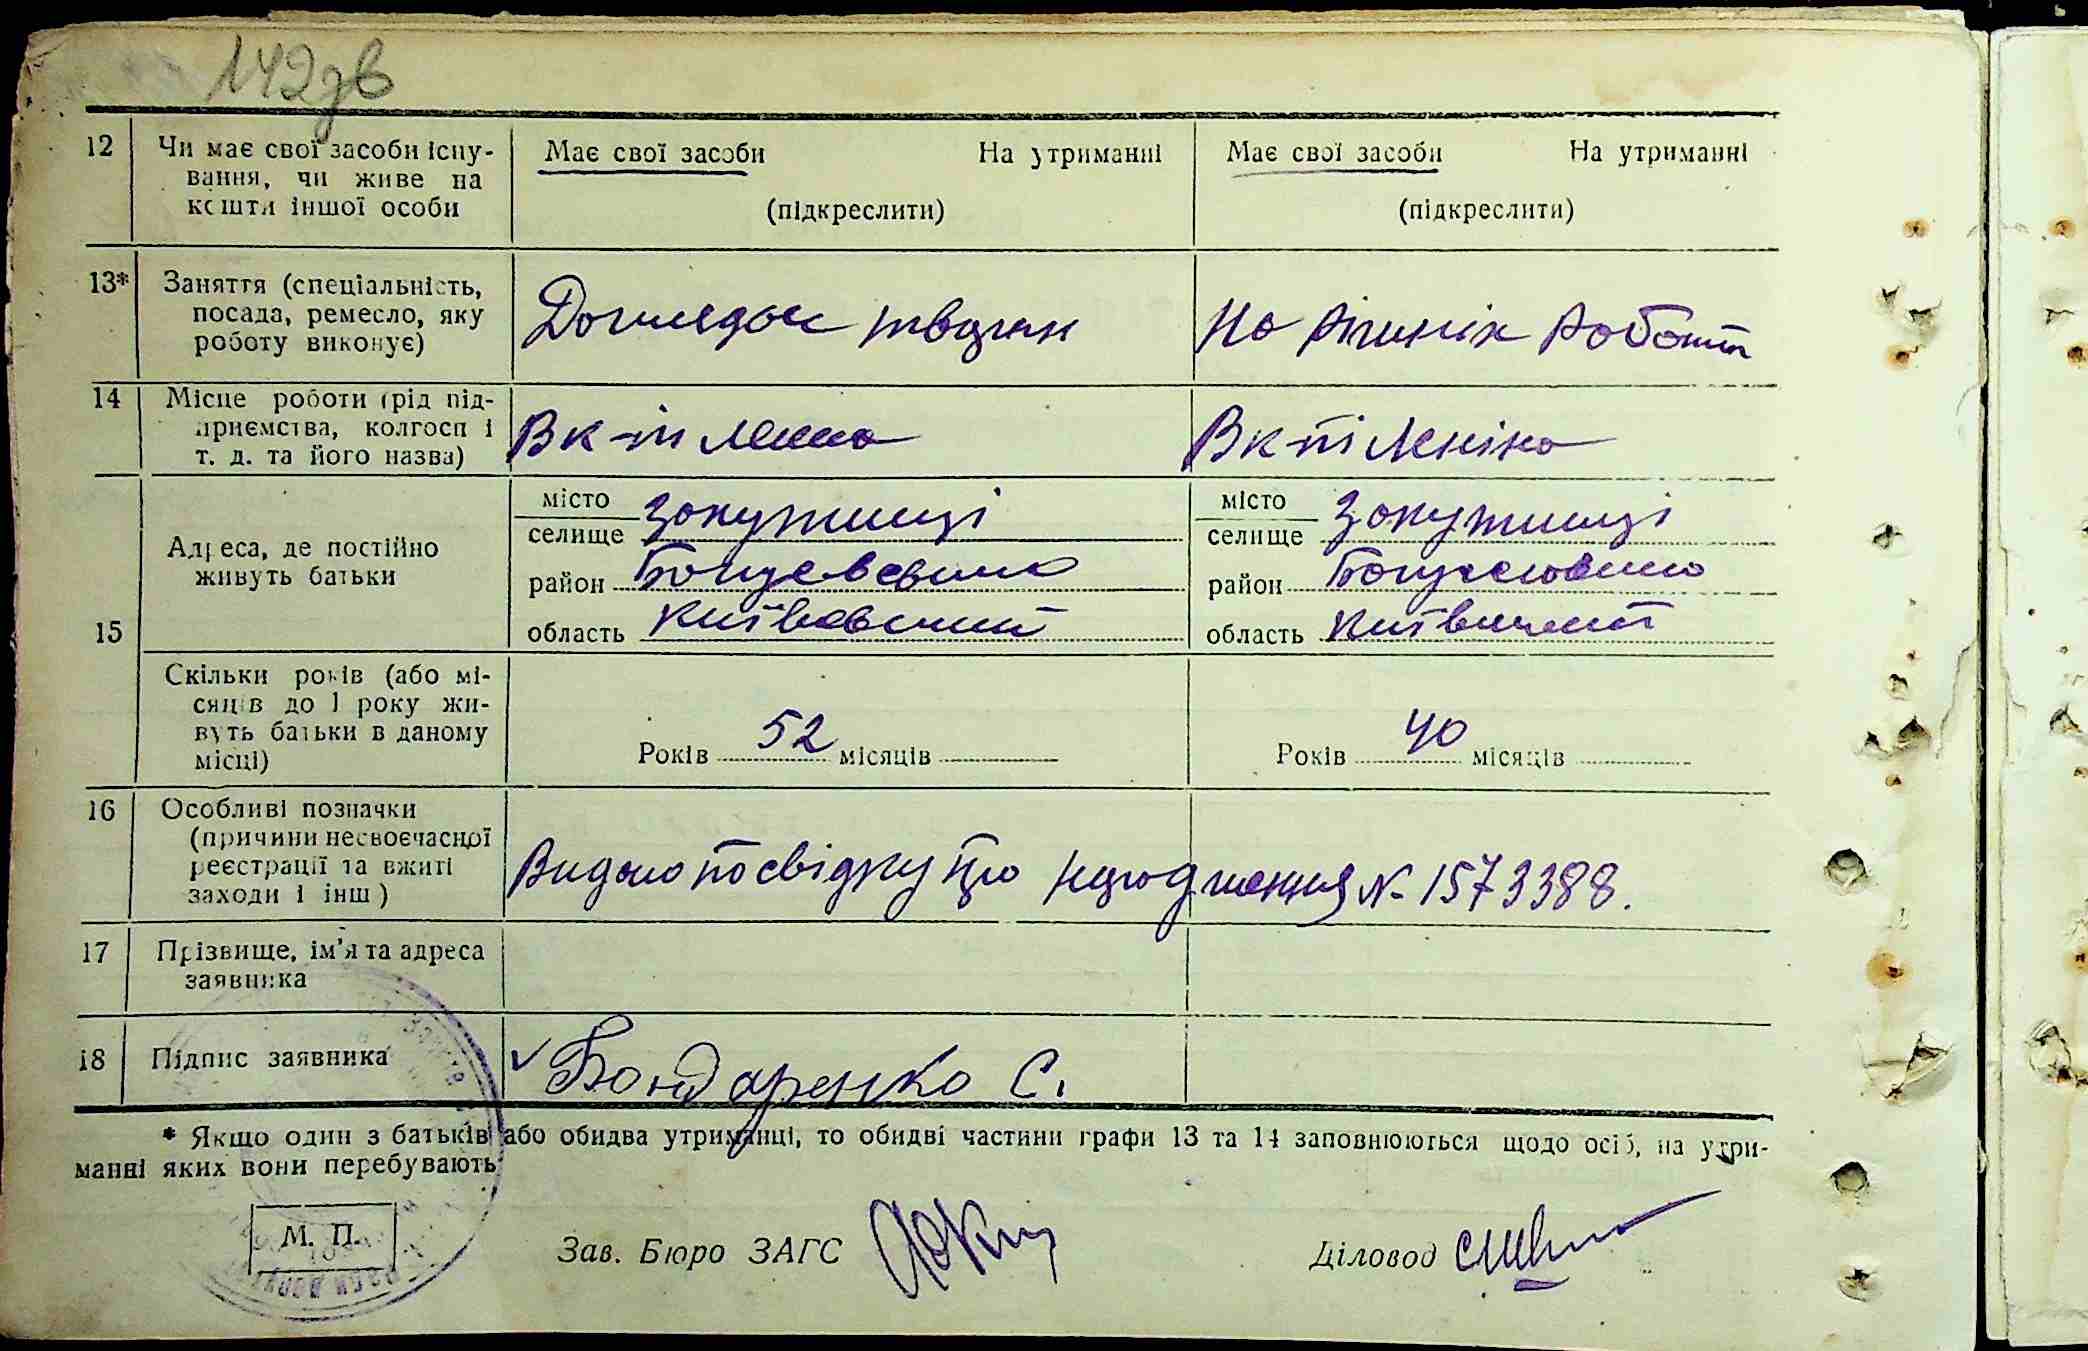 142 зв
12 Чи має свої засоби існу- Має свої засоби На утриманні Має свої засоби На утриманні
вання, чи живе на
кошти іншої особи (підкреслити) (підкреслити)
13* Заняття (спеціальність,
посада, ремесло, яку Доглядач тварин На різних роботах
роботу виконує)
14 Місце роботи (рід під-
приємства, колгосп і В к-пі Леніна В к-пі Леніна
т. д. та його назва)
місто місто
селище Закутинці селище Закутинці
Адреса, де постійно
живуть батьки район Богуславського район Богуславського
15 область Київської область Київської
Скільки років (або мі-
сяців до 1 року жи-
вуть батьки в даному Років 52 місяців Років 40 місяців
місці)
16 Особливі позначки
(причини несвоєчасної
реєстрації та вжиті Видано посвідку про народження № 1573388.
заходи і інш)
17 Прізвище, ім'я та адреса
заявника
18 Підпис заявника Бондаренко С.
* Якщо один з батьків або обидва утриманці, то обидві частини графи 13 та 14 заповнюються щодо осіб, на утри-
манні яких вони перебувають
М. П. Зав. Бюро ЗАГС Діловод